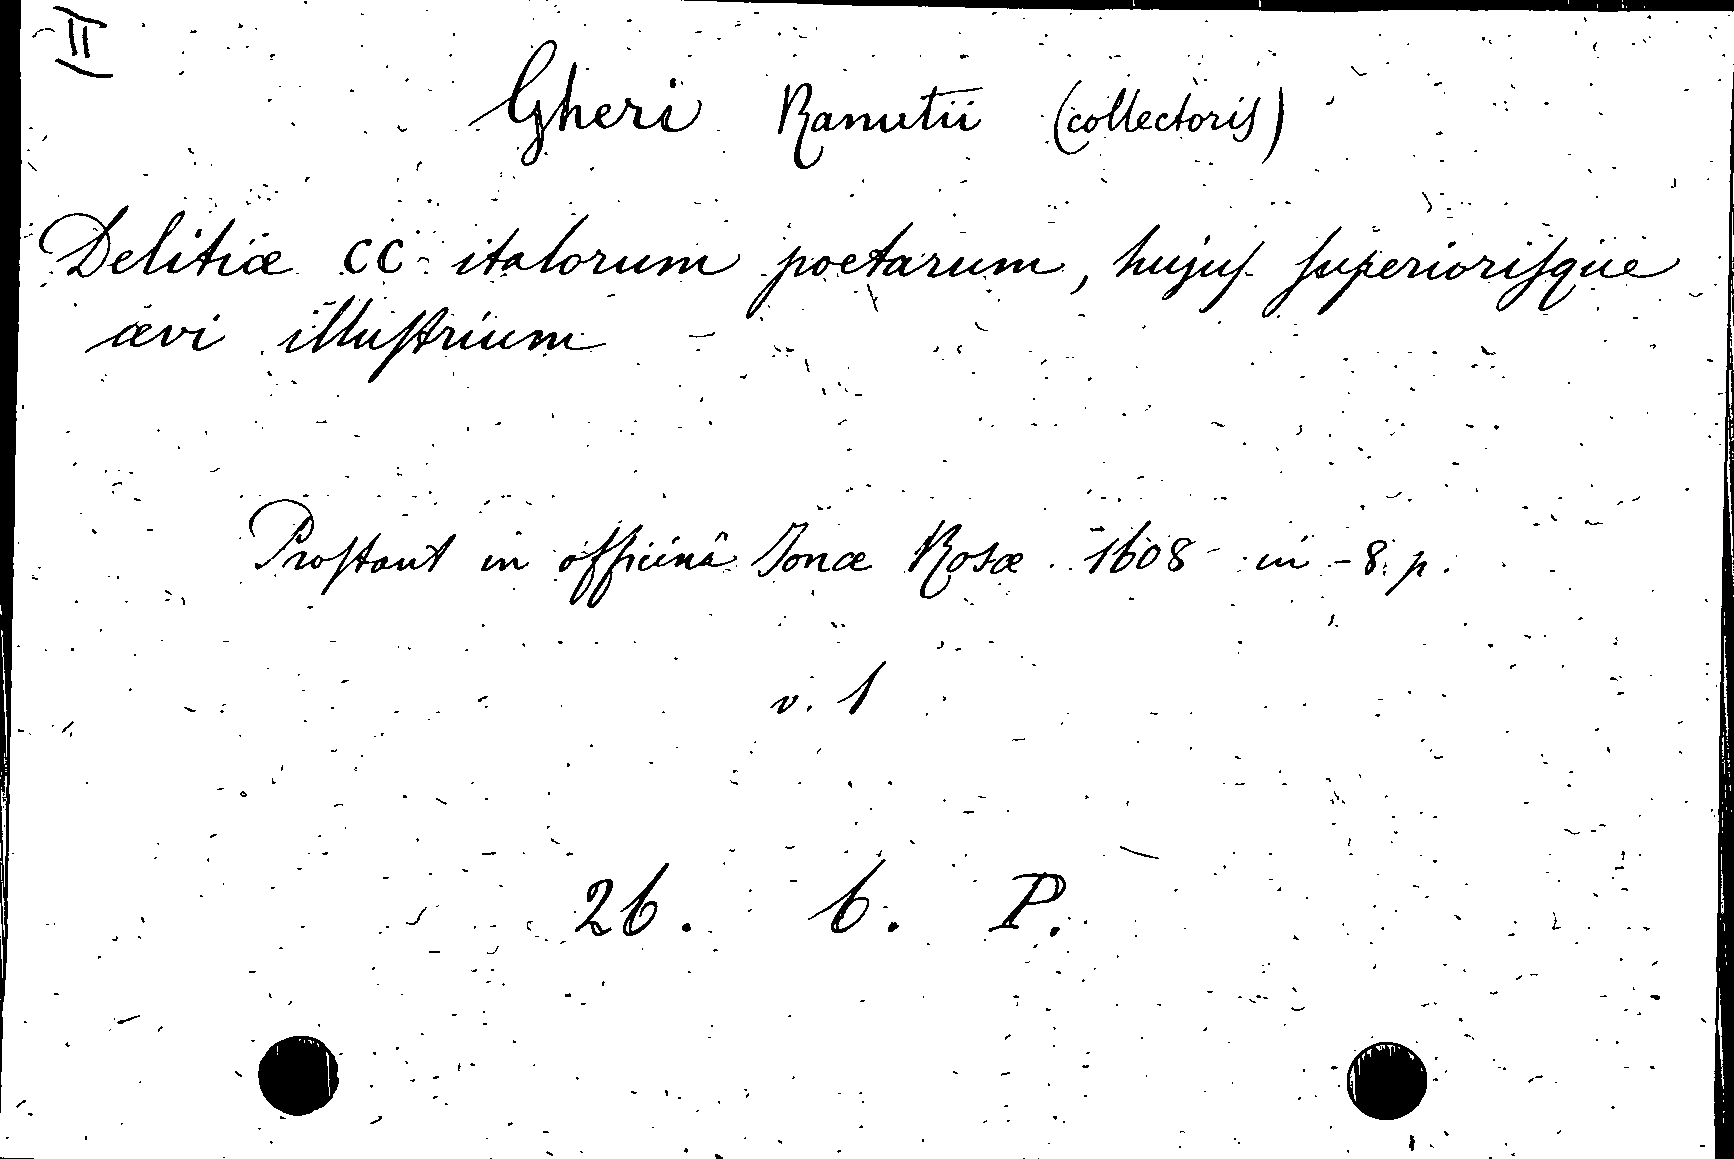 II
Gheri Ranutii (collectoris)
Delitiæ CC italorum poetarum, hujus superiorisque
ævi illustrium
Prostant in officinâ Jonæ Rosæ 1608 in-8. p.
v. 1
26. 6. P.